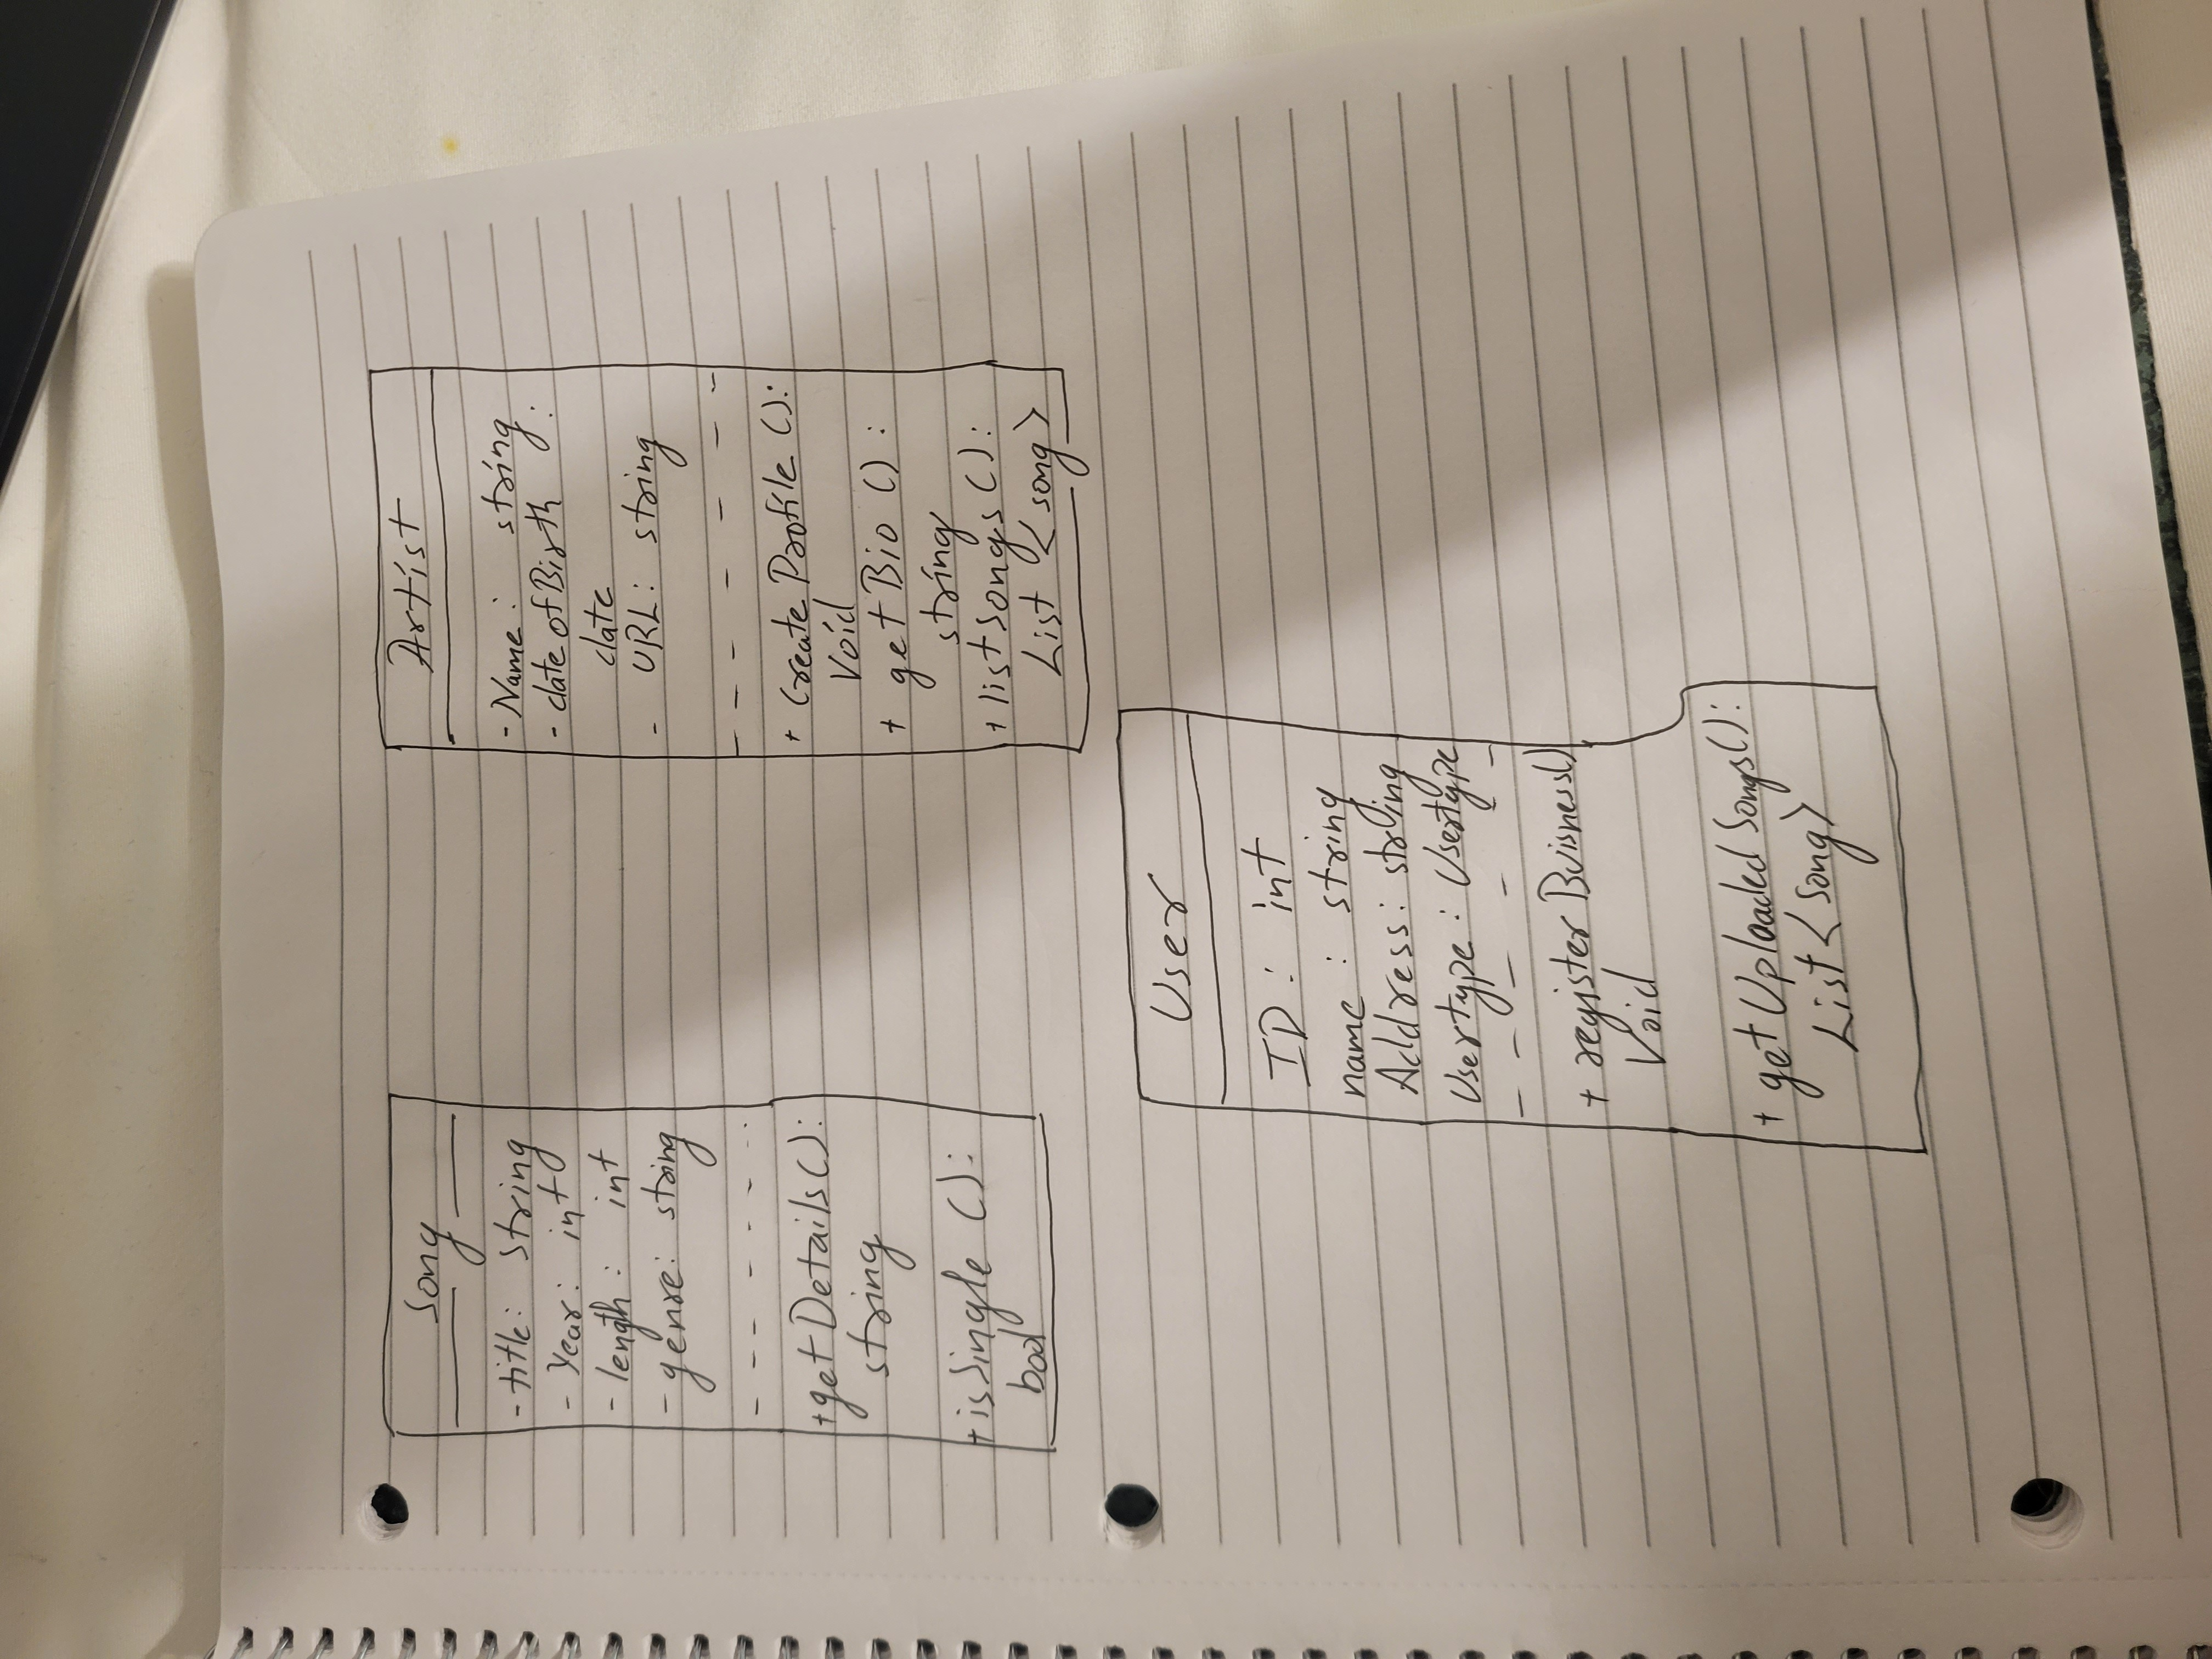 Song
- title: string
- Year: int
- length: int
- genre: string
+getDetails():
string
+isSingle():
bool
Artist
- Name: string
- dateofBirth:
date
- URL: string
+ CreateProfile():
Void
+ getBio():
string
+ listsongs():
List <song>
User
ID: int
name: string
Address: string
Usertype: Usertype
+ registerBuisness()
Void
+ getUploadedSongs():
List <Song>